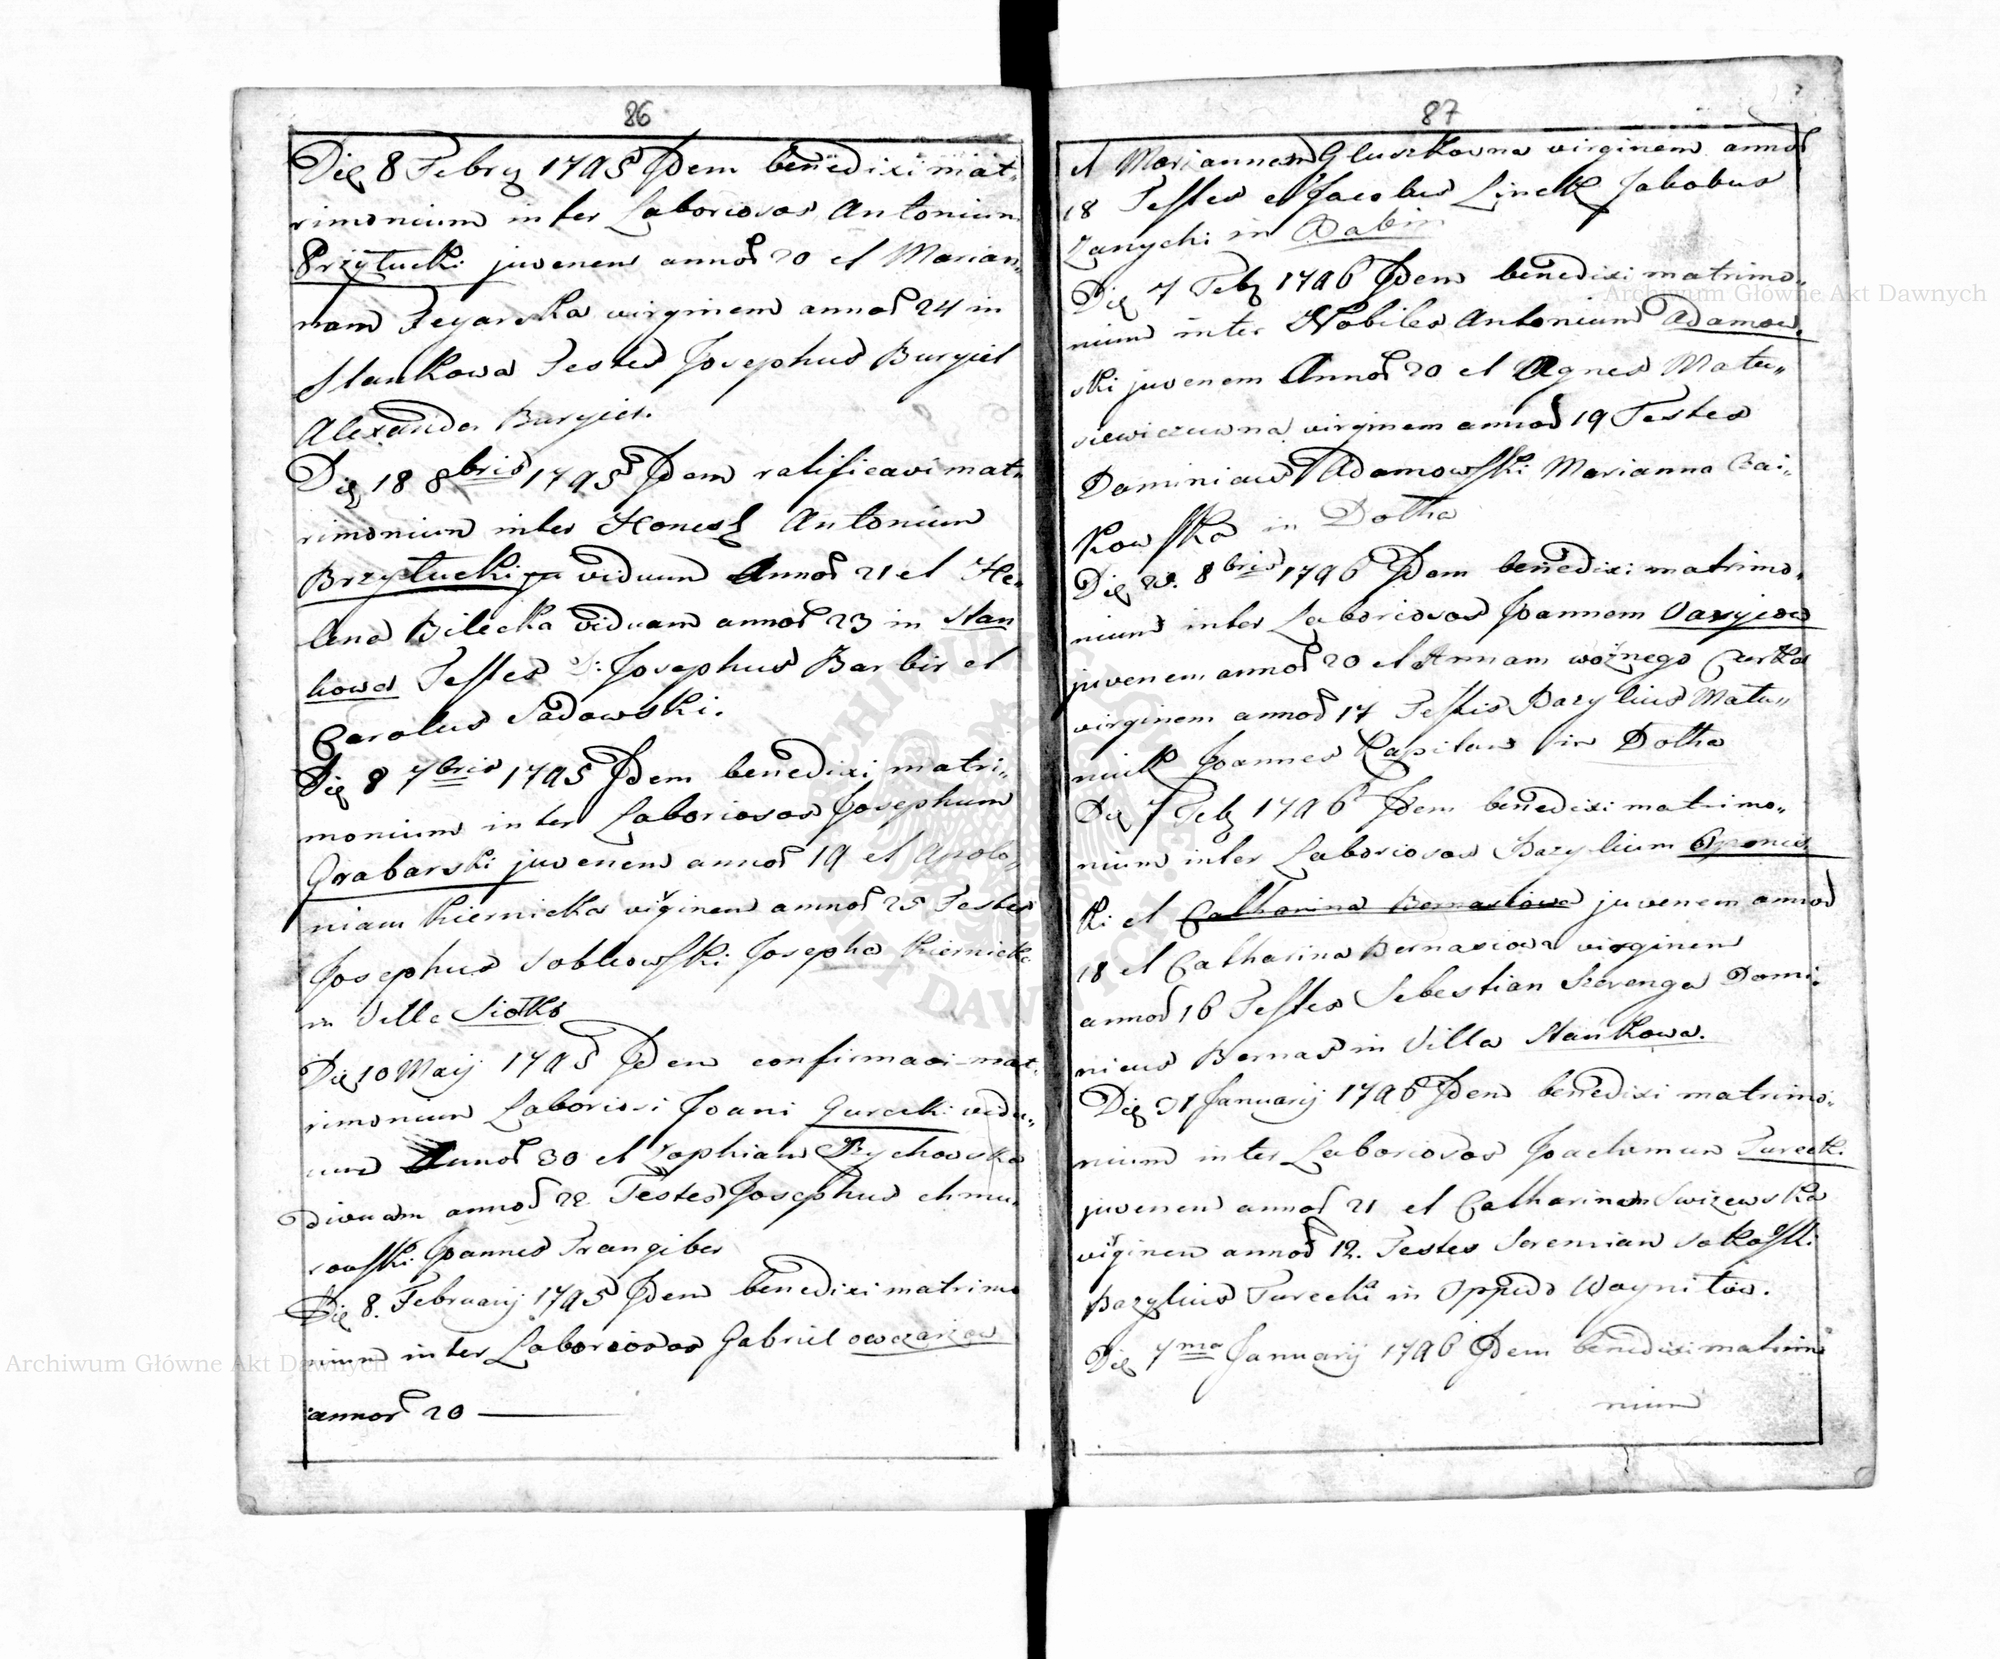 86
Die 8 Febry 1795 Idem benedixi mat,,
rimonium inter Laboriosos Antonium
Przytucki juvenem annor 20 et Marian,,
nam virginem annor 24 in
Stankowa Testes Josephus Burgiel
Alexander Burgiel.
Die 18 8bris 1795 Idem ratificavi mat,,
rimonium inter Honest Antonium
Brzytucki viduum Annor 21 et He,,
lena Bilecka viduam annor 23 in Stan
kowa Testes D: Josephus Barbir et
Carolus Sadowski.
Die 8 7bris 1795 Idem benedixi matri,,
monium inter Laboriosos Josephum
Grabarski juvenem annor 19 et Apolo,,
niam Kiernicka virginem annor 25 Testes
Josephus Soblowski Josepha Kiernicka
in Villa Siolko
Die 10 Maij 1795 Idem confirmavi mat,,
rimonium Laboriosi Joani Gurecki vidu,,
um Annor 30 et Zophiam Rychowska
divuam annor 22 Testes Josephus chmu,,
rowski Joannes Frangiber
Die 8. Februarij 1795 Idem benedixi matrimo
nium inter Laboriosos Gabriel owczarzow
annor 20
87
et Mariannam Gluszkowna virginem annor
18 Testes et Jacobus Linek Jakobus
Zanychi in
Die 7 Feb 1796 Idem benedixi matrimo,,
nium inter Nobiles Antonium Adamow,,
ski juvenem Annor 20 et Agnes Matu,,
siewiczuwna virginem annor 19 Testes
Dominicus Adamowski Marianna Cai,,
kowska in Dolha
Die 8bris 1796 Idem benedixi matrimo,,
nium inter Laboriosos Joannem
juvenem annor 20 et Annam woźnego Curka
virginem annor 17 Testis Bazylius Matu,,
Joannes Kapitan in Dolha
Die 7 Feb 1796 Idem benedixi matrimo,,
nium inter Laboriosos Bazylium
ki et Catharina Bernasiowa juvenem annor
18 et Catharina Bernasiowa virginem
annor 16 Testes Sebestian Szerenga Domi,,
nicus Bernas in Villa Stankowa.
Die 31 Januarij 1796 Idem benedixi matrimo,,
nium inter Laboriosos Joachimum Turecki
juvenem annor 21 et Catharinam Swizewska
virginem annor 12. Testes Jeremian
Bazylius Turecki in Oppido Woynitow.
Die 7ma Januarij 1796 Idem benedixi matrimo
nium
Archiwum Główne Akt Dawnych
Archiwum Główne Akt Dawnych